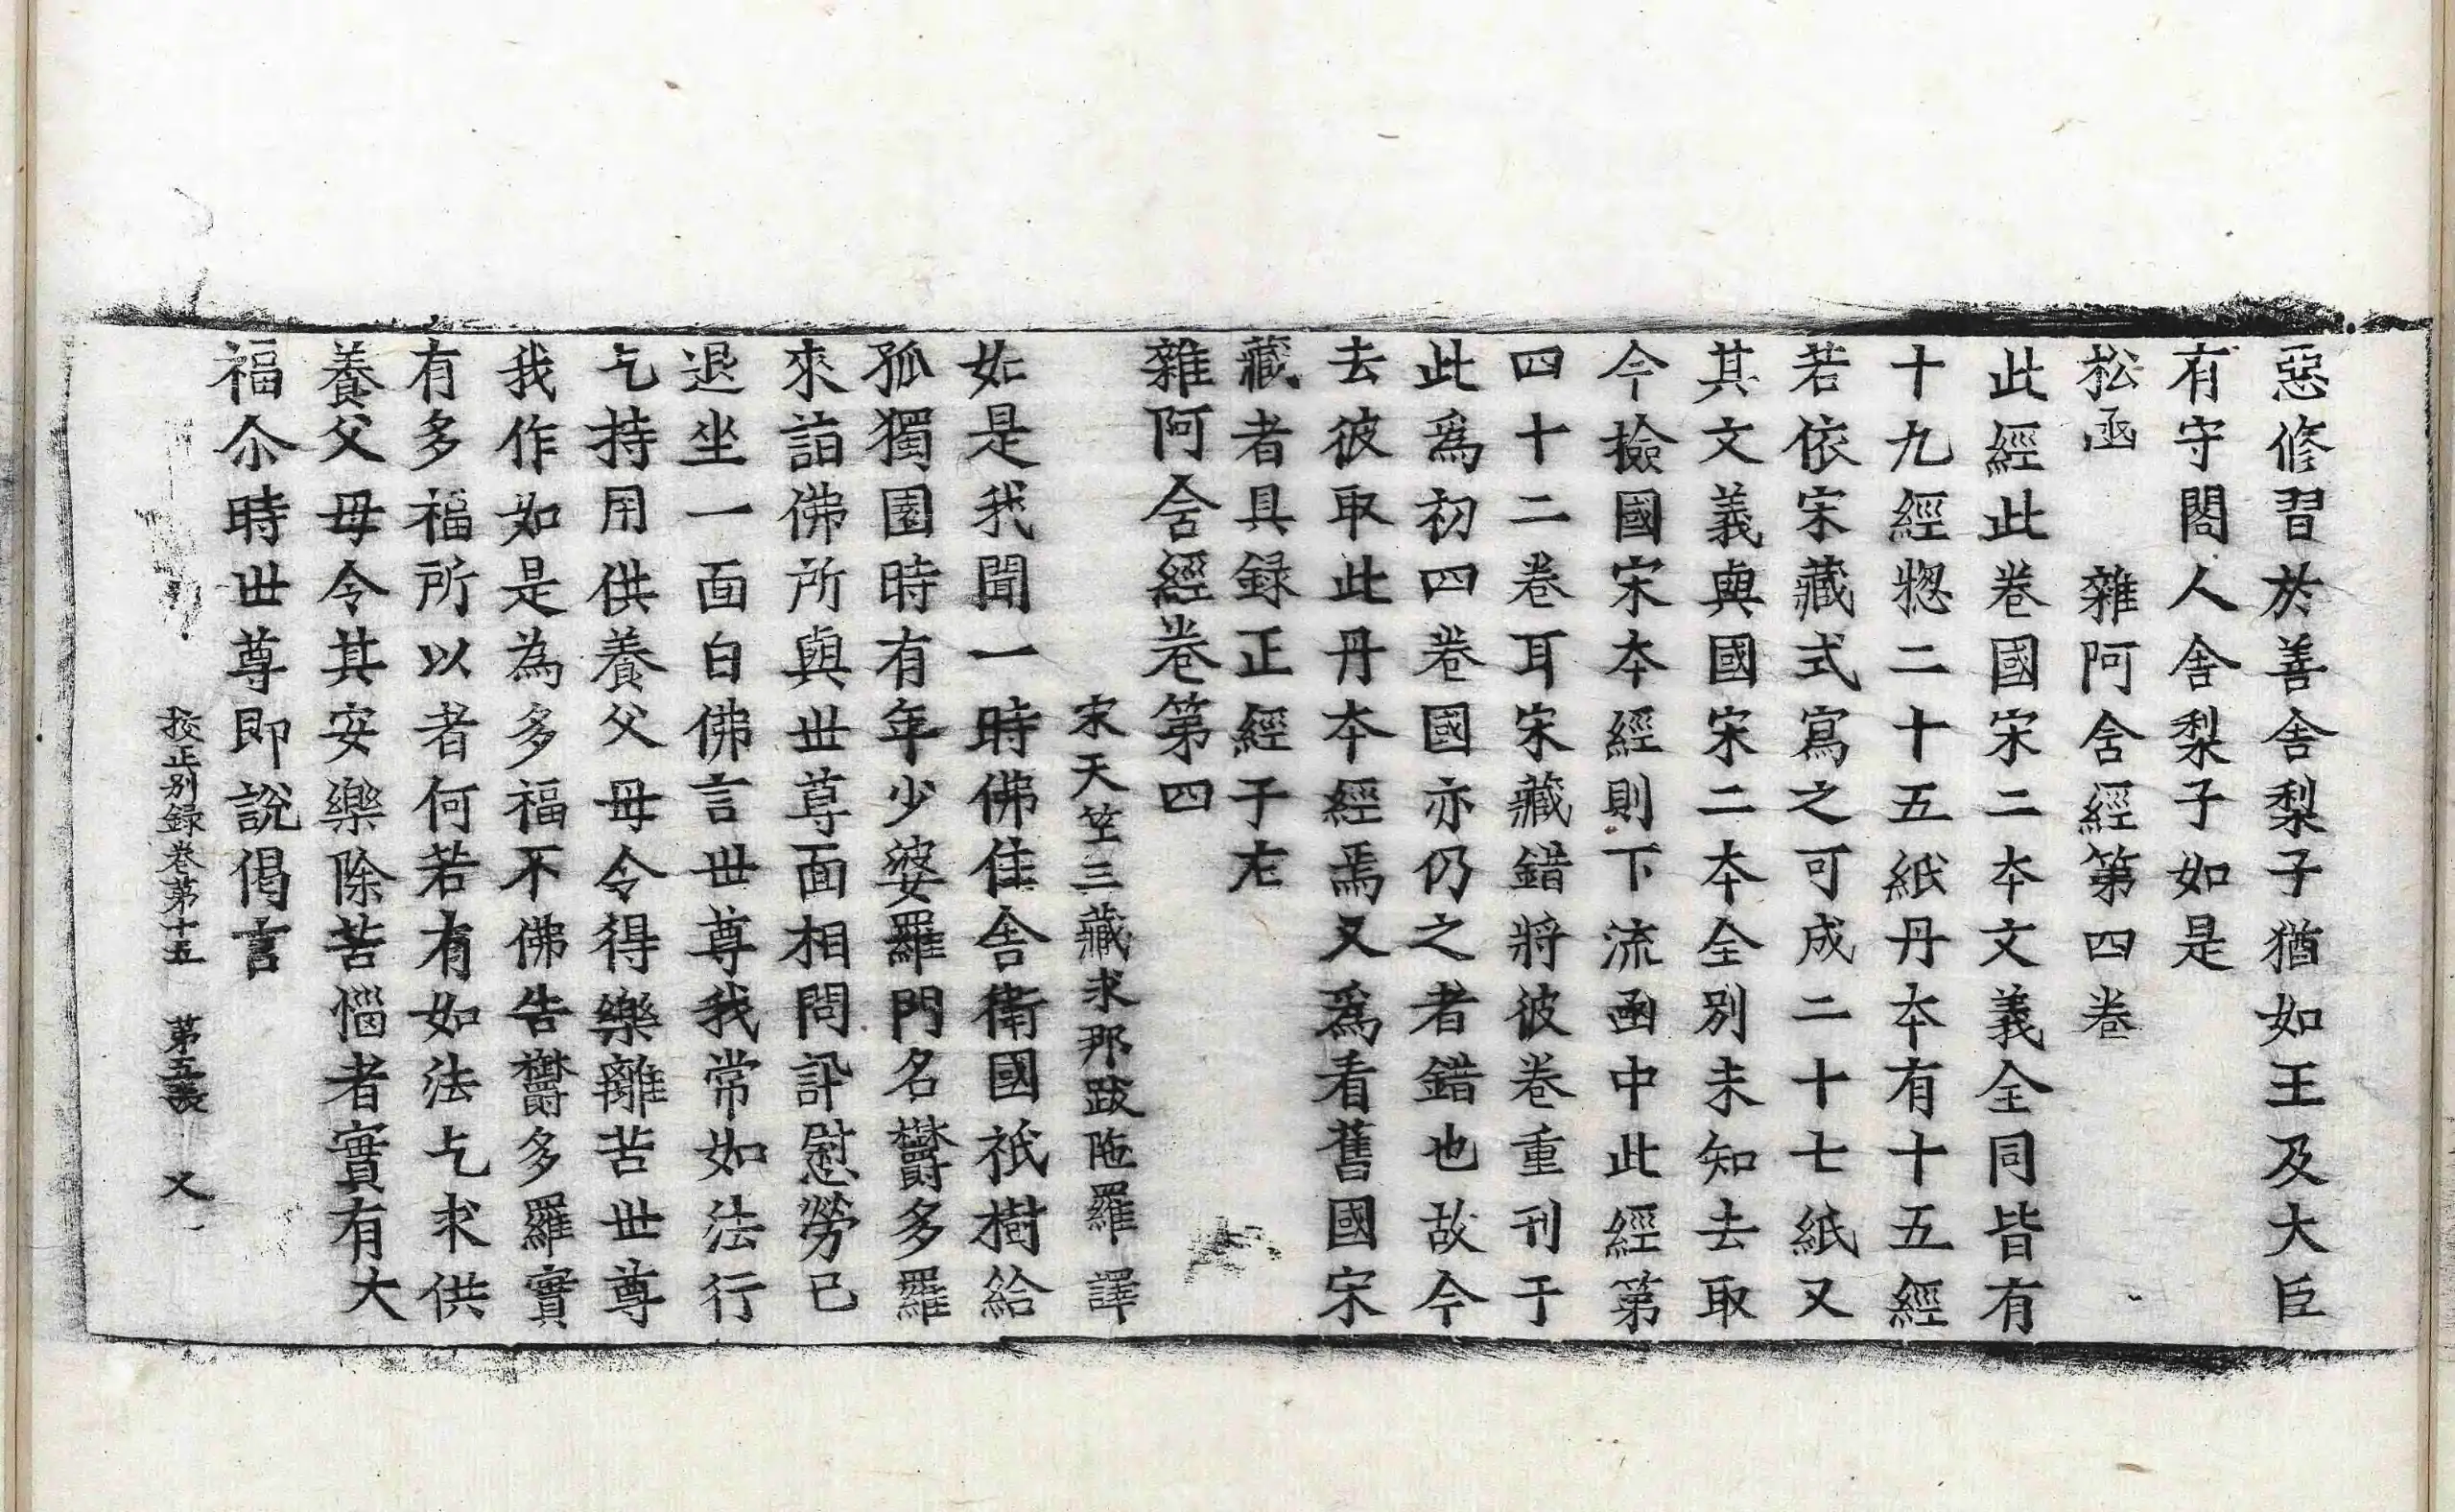 惡修習於善舎梨子猶如王及大臣
有守閤人舎梨子如是
松函　雜阿含經第四卷
此經此卷國宋二本文義全同皆有
十九經揔二十五紙丹本有十五經
若依宋藏式寫之可成二十七紙又
其文義與國宋二本全別未知去取
今撿國宋本經則下流函中此經第
四十二卷耳宋藏錯將彼卷重刊于
此爲初四卷國亦仍之者錯也故今
去彼取此丹本經焉又爲看舊國宋
藏者具録正經于左
雜阿含經卷第四
宋天竺三藏求那跋陁羅譯
如是我聞一時佛住舎衛國祇樹給
孤獨園時有年少婆羅門名欝多羅
來詣佛所與世尊面相問訊慰勞已
退坐一面白佛言世尊我常如法行
乞持用供養父母令得樂離苦世尊
我作如是為多福不佛告欝多羅實
有多福所以者何若有如法乞求供
養父母令其安樂除苦惱者實有大
福尒時世尊即說偈言
挍正別録卷第十五　第五張　又